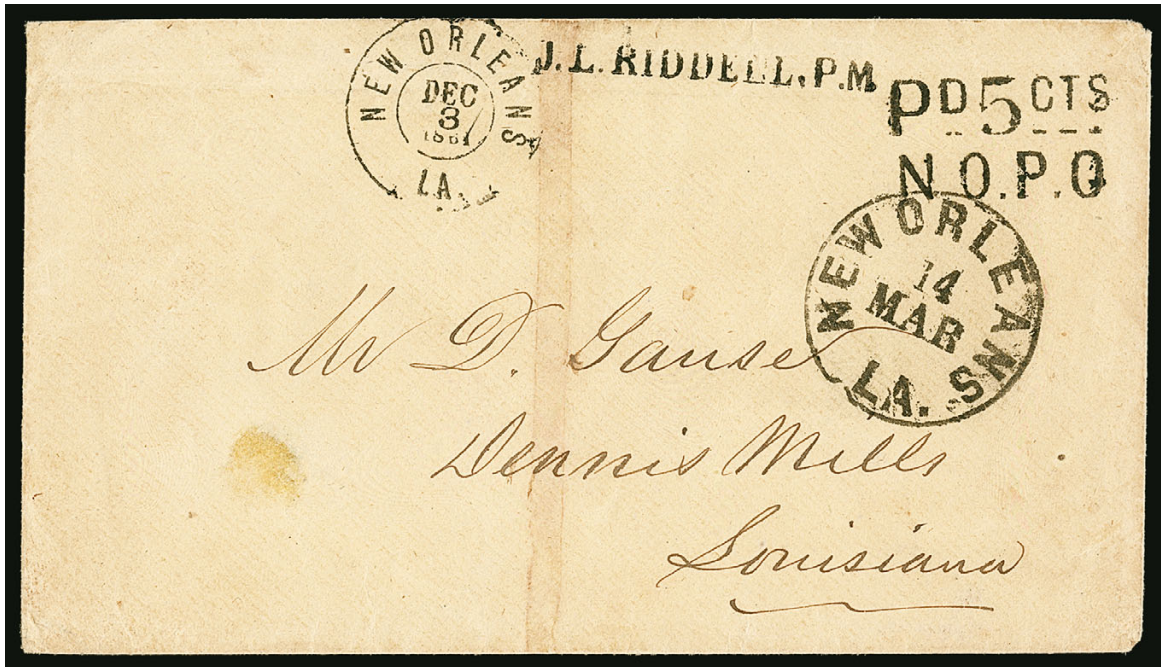 NEW ORLEANS
DEC
3
1861
LA.
J. L. RIDDELL, P.M
PD 5 CTS
N.O.P.O
NEW ORLEANS
14
MAR
LA.
Mr D. Gause
Dennis Mills
Louisiana